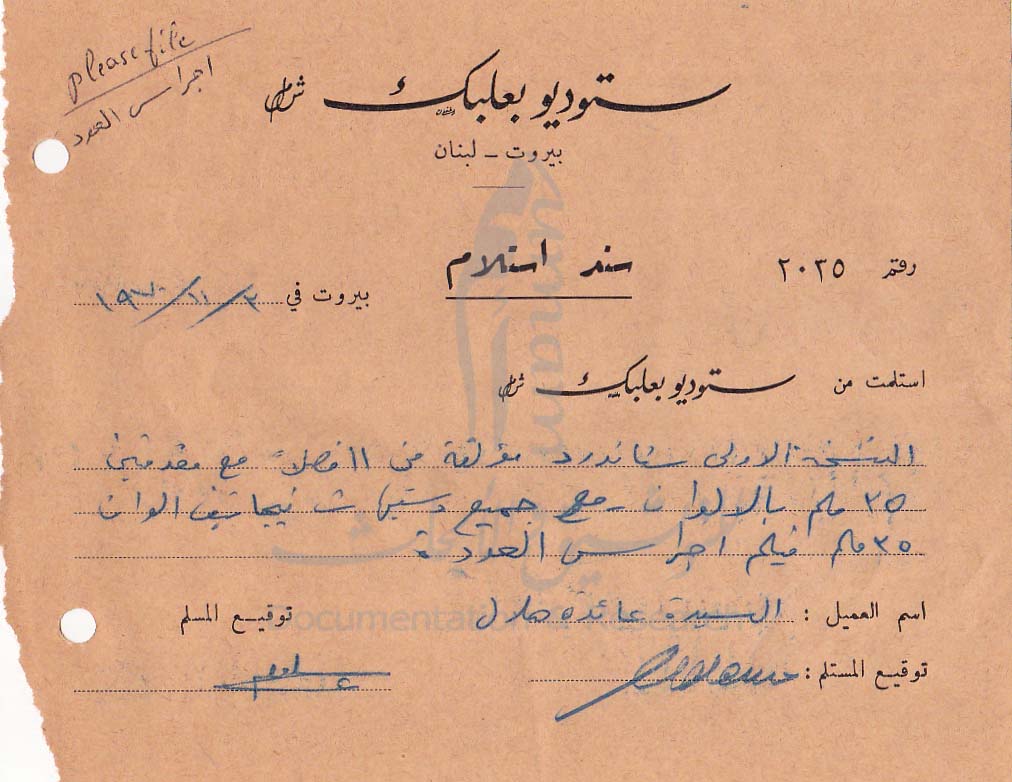 please file
اجراس العود
ستوديو بعلبك ش.م.ل
بيروت - لبنان
رقم ٢٠٢٥
سند استلام
بيروت في ٣/١١/١٩٧٠
استلمت من ستوديو بعلبك ش.م.ل
النسخة الاولى ستاندرد مؤلفة من ١١ فصلاً مع مقدمتين
٣٥ ملم بالالوان - مع جميع نيجاتيف الوان
٣٥ ملم فيلم اجراس العودة
اسم العميل : السيدة عائدة هلال
توقيع المسلم
توقيع المستلم :
Documentation & Research